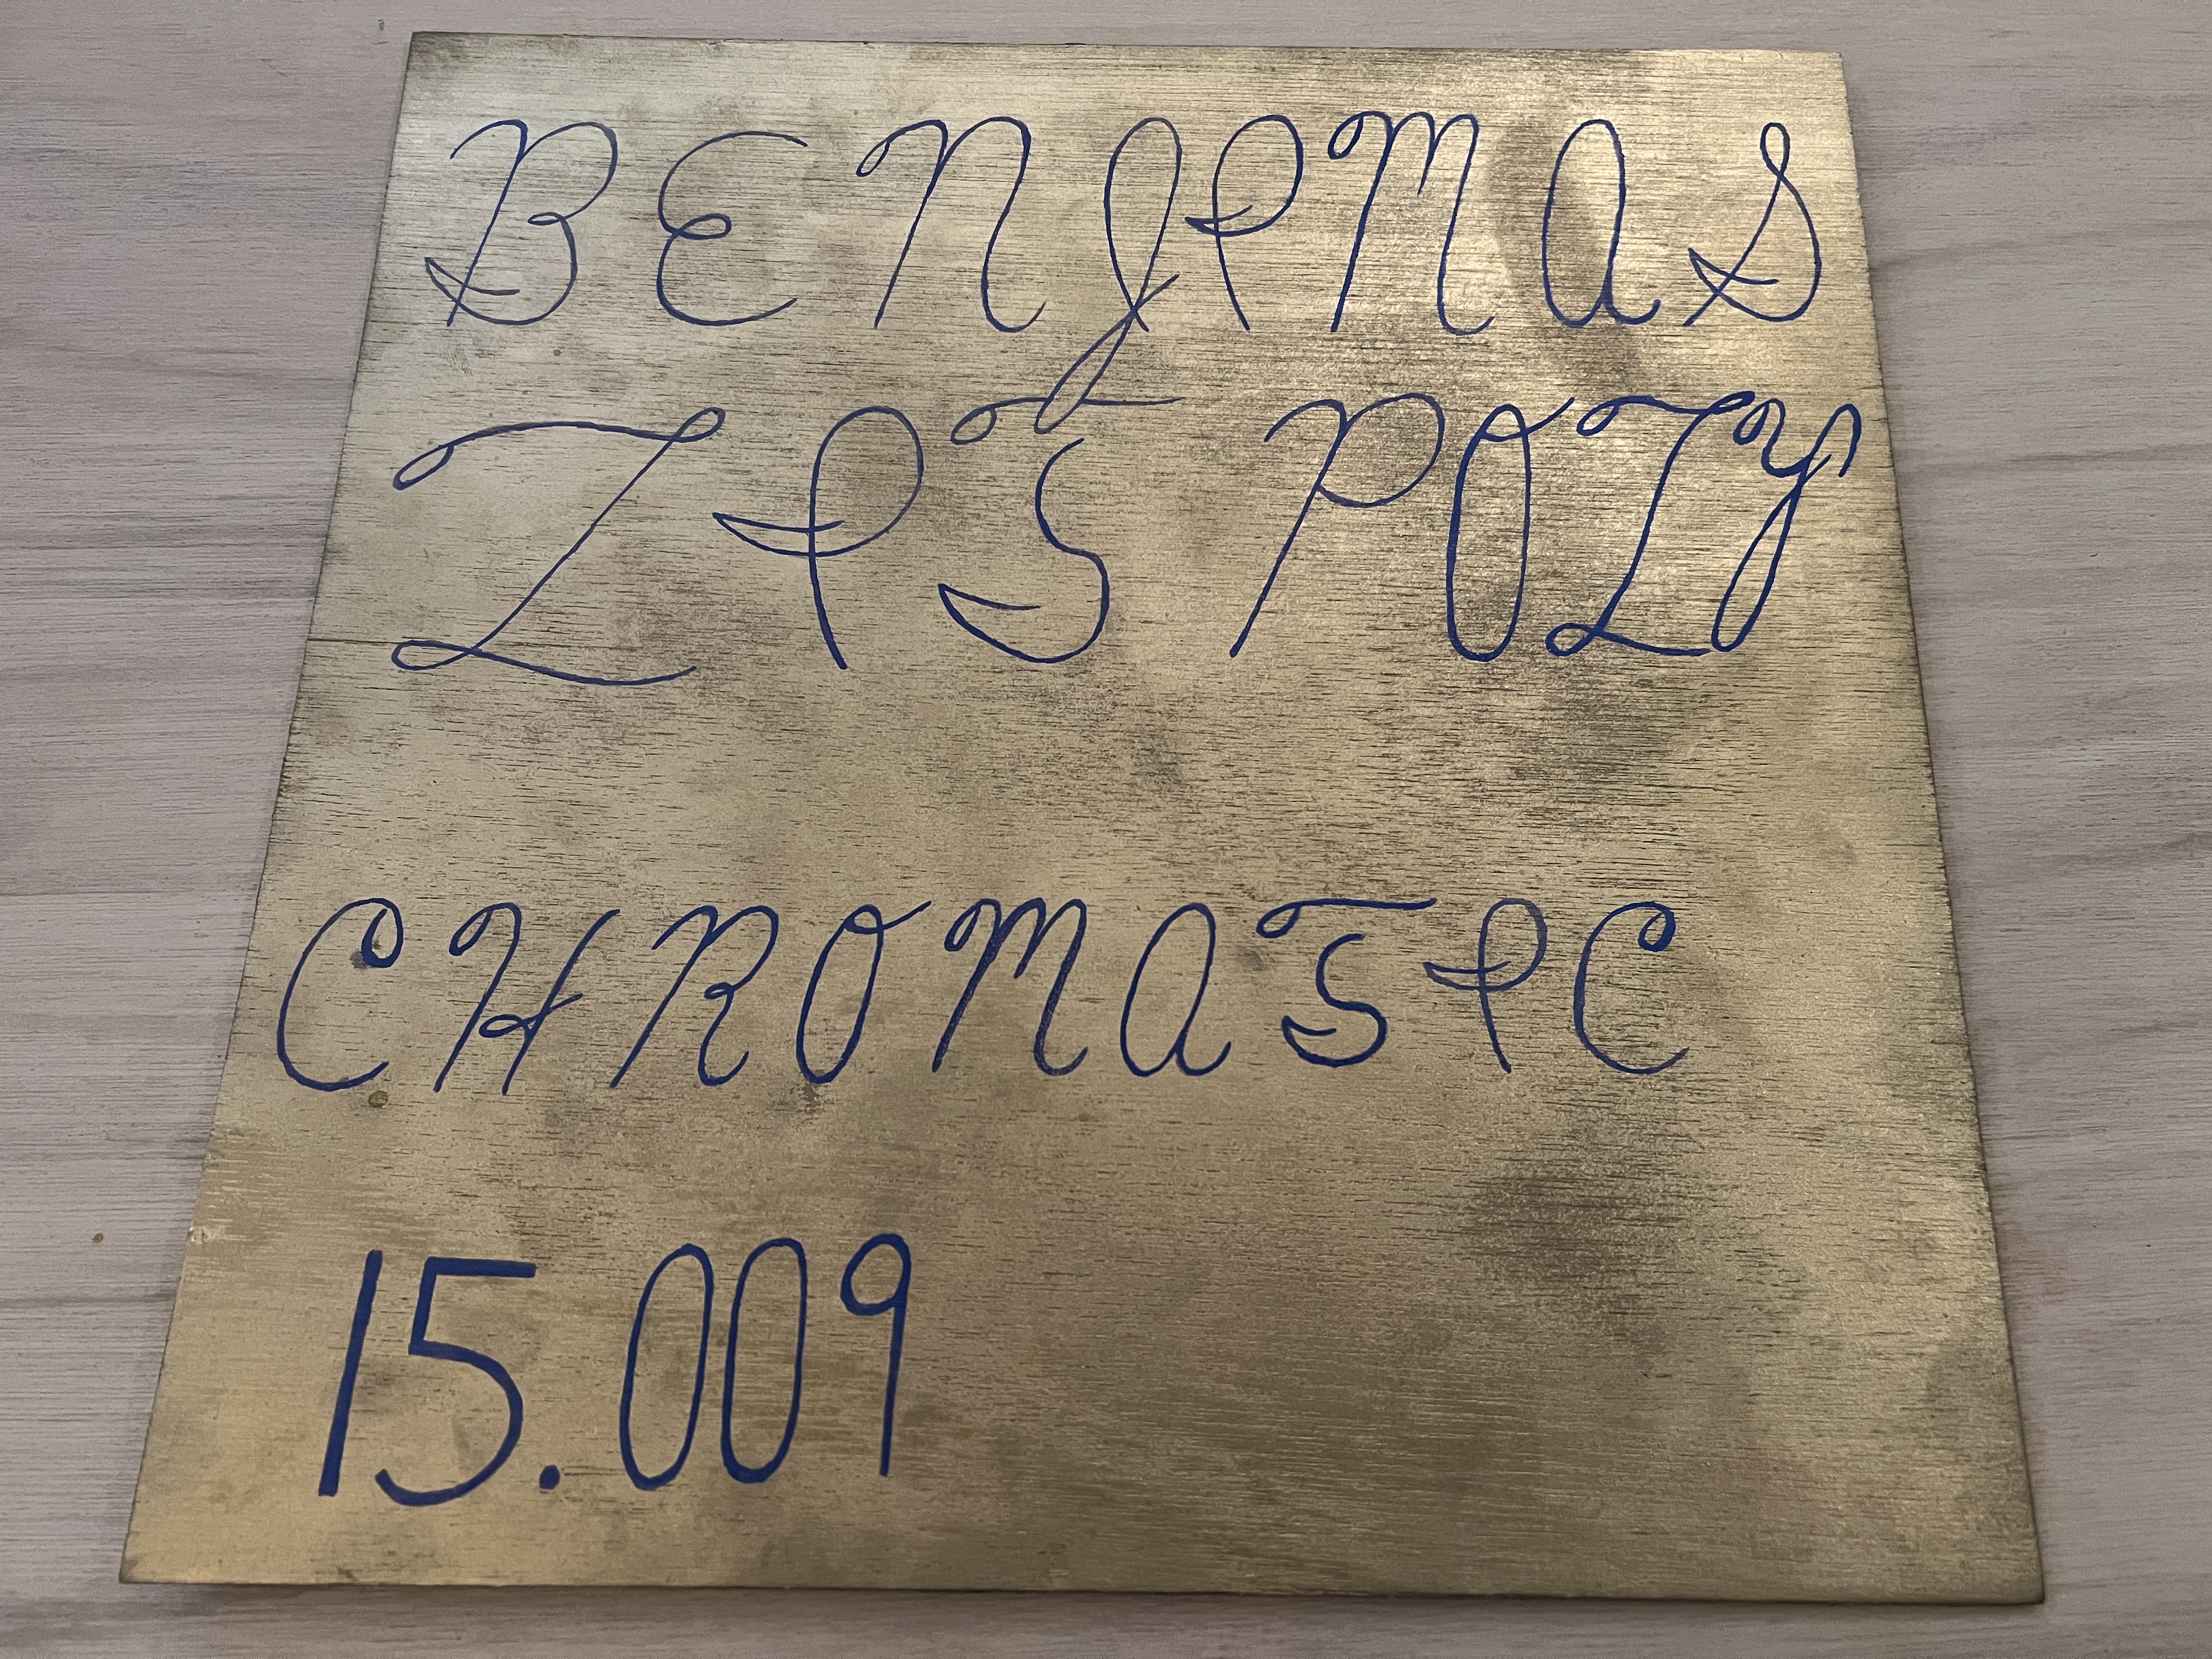 BENJIMAS
LIT POLY
CHROMATIC
15.009